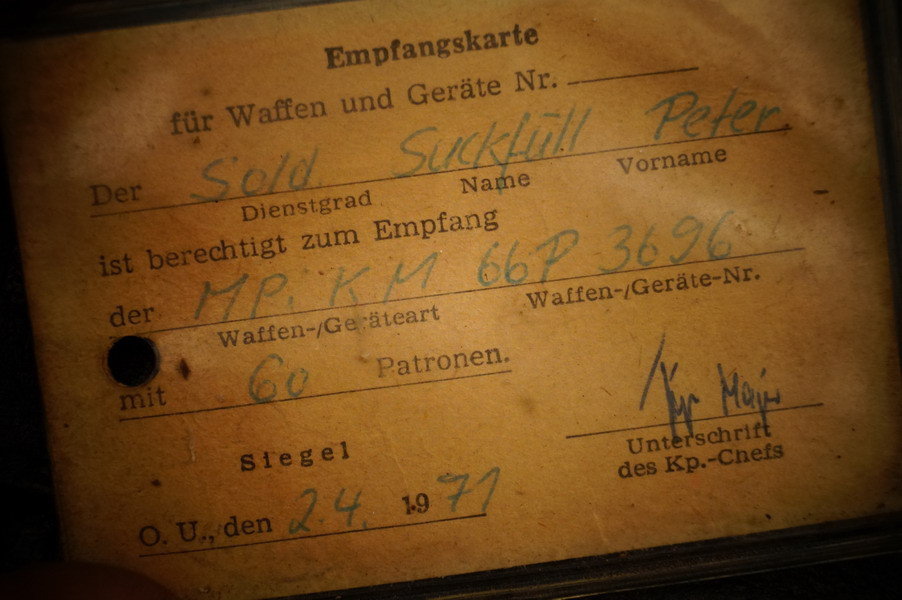 Empfangskarte
für Waffen und Geräte Nr.
Der Sold Suckfüll Peter
Dienstgrad Name Vorname
ist berechtigt zum Empfang
der MP. KM 66P 3696
Waffen-/Geräteart Waffen-/Geräte-Nr.
mit 60 Patronen.
Siegel
Unterschrift
des Kp.-Chefs
O. U., den 2.4. 1971